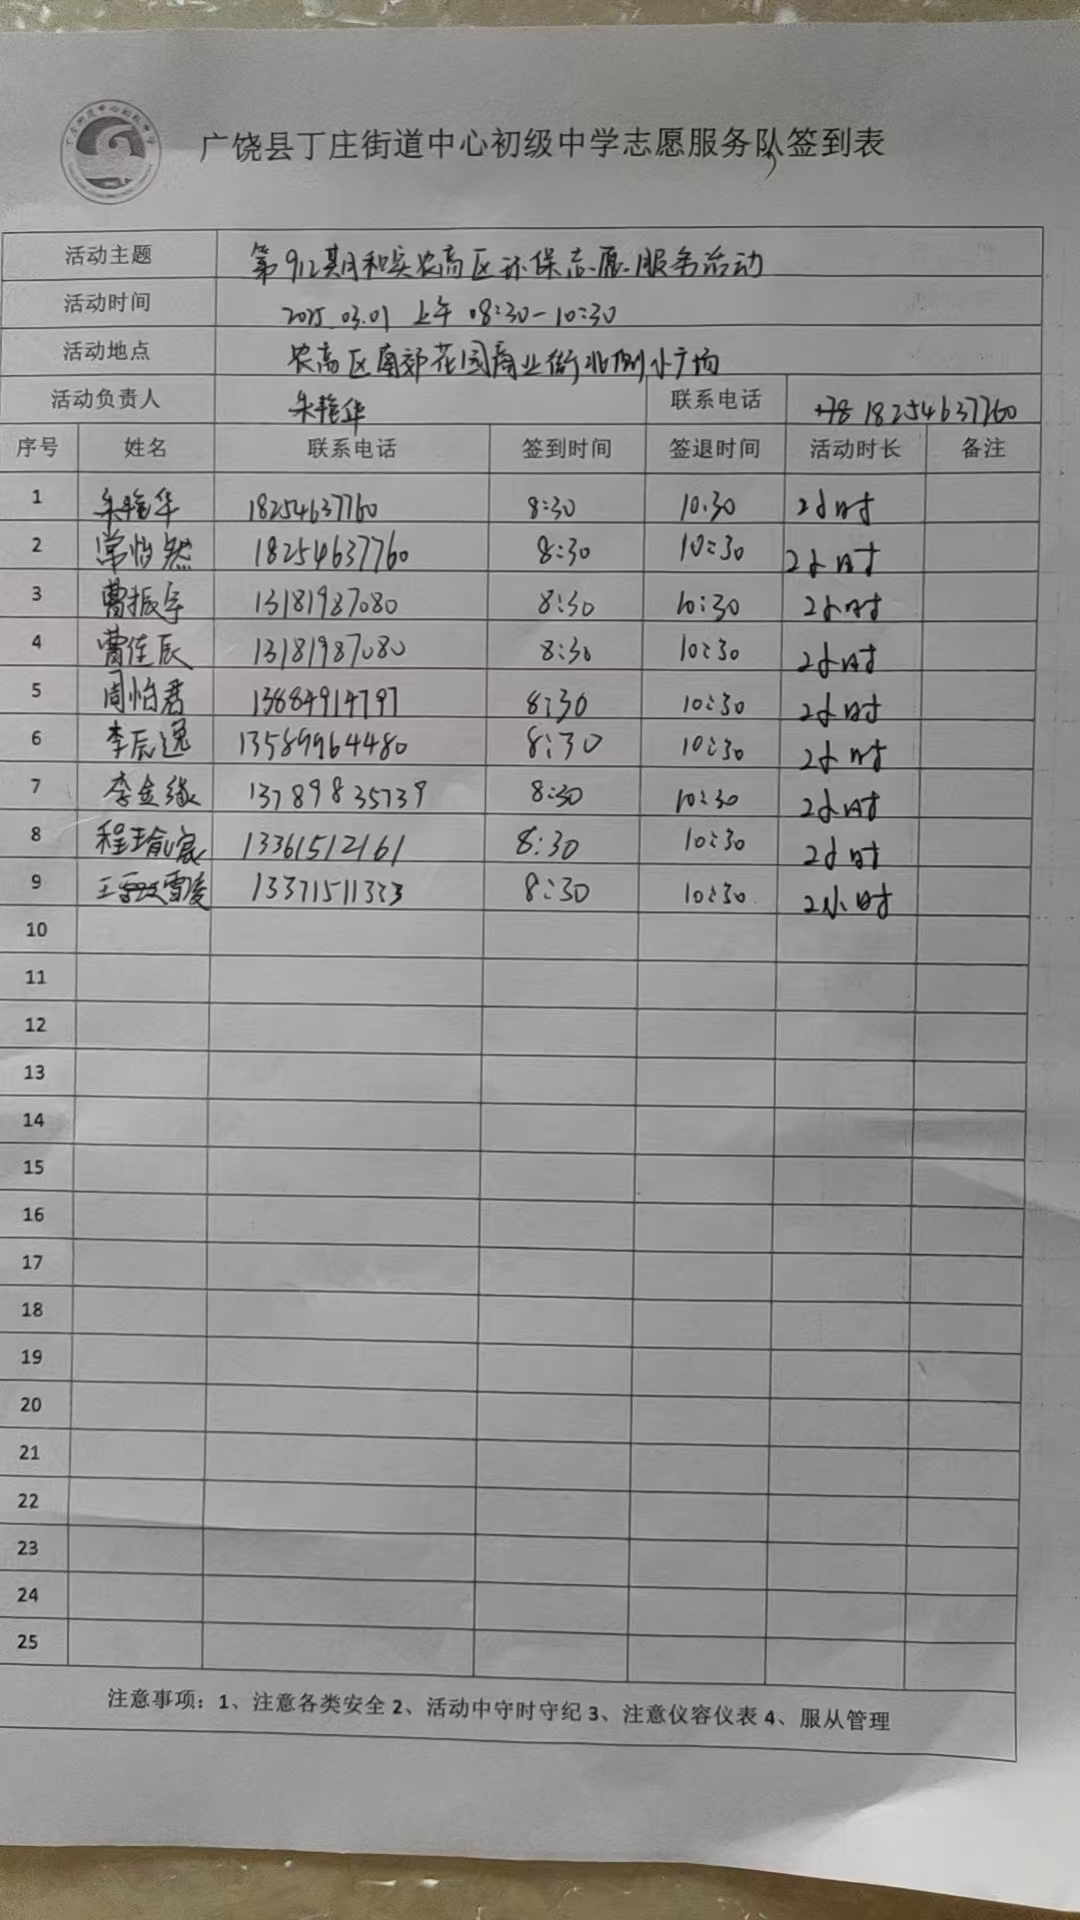 广饶县丁庄街道中心初级中学志愿服务队签到表
活动主题 第912期和实农高区环保志愿服务活动
活动时间 2025.03.01 上午 08:30-10:30
活动地点 农高区南郊花园商业街北侧小广场
活动负责人 朱艳华 联系电话 +78 18254637760
序号 姓名 联系电话 签到时间 签退时间 活动时长 备注
1 朱艳华 18254637760 8:30 10.30 2小时
2 常怡然 18254637760 8:30 10:30 2小时
3 曹振宇 13181987080 8:30 10:30 2小时
4 曹佳辰 13181987080 8:30 10:30 2小时
5 周怡君 13884914797 8:30 10:30 2小时
6 李辰逸 13589964480 8:30 10:30 2小时
7 李金缘 13789835739 8:30 10:30 2小时
8 程瑜宸 13361512161 8:30 10:30 2小时
9 王雪凌 13371511323 8:30 10:30 2小时
10
11
12
13
14
15
16
17
18
19
20
21
22
23
24
25
注意事项：1、注意各类安全 2、活动中守时守纪 3、注意仪容仪表 4、服从管理